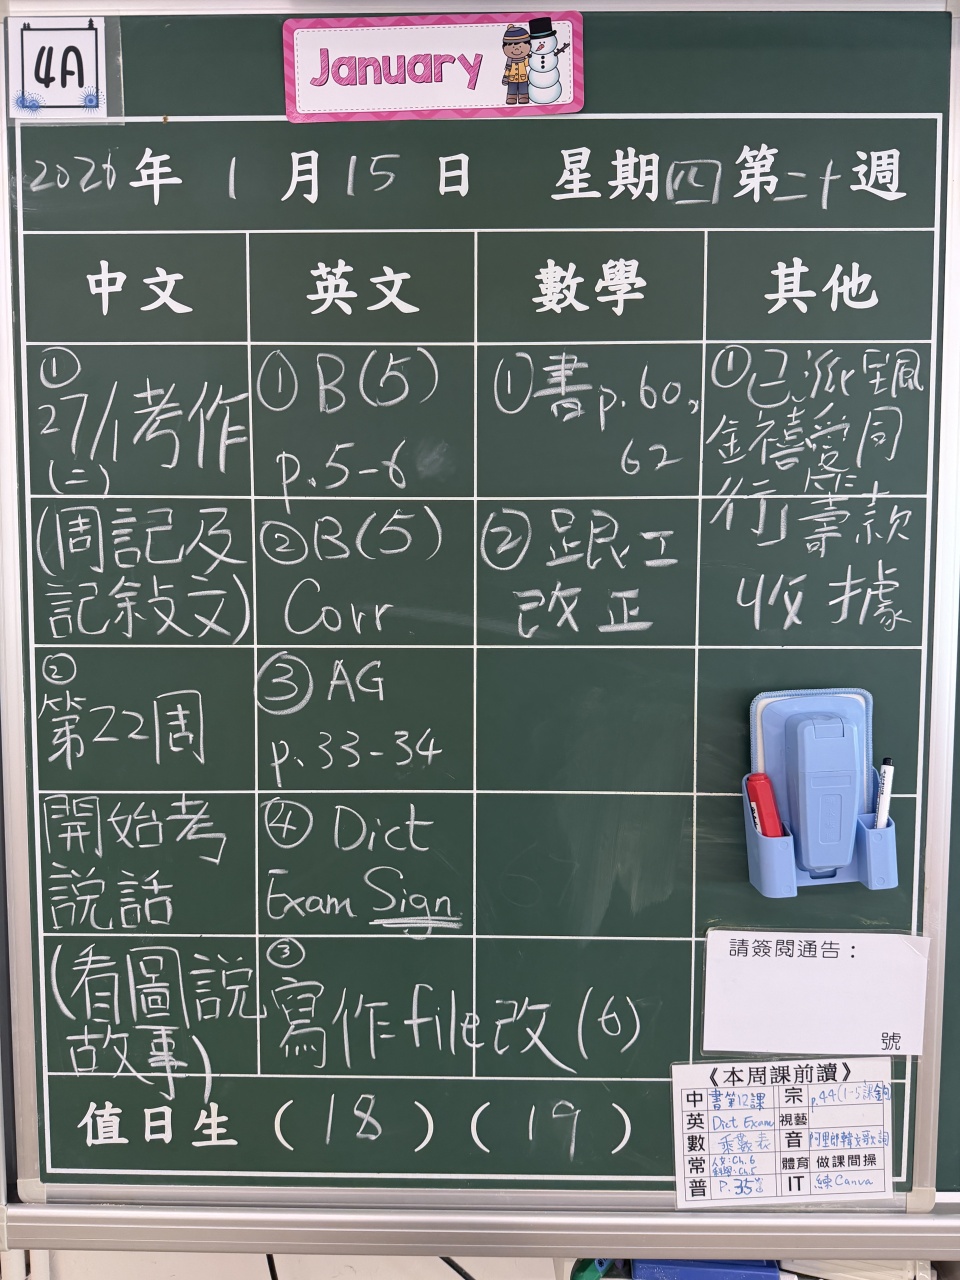 4A
January
2026年 1月 15日 星期四 第二十週
中文
英文
數學
其他
①
27/1考作
(二)
(周記及
記敍文)
②
第22周
開始考
説話
(看圖説
故事)
①B(5)
p.5-6
②B(5)
Corr
③AG
p.33-34
④Dict
Exam Sign
③
寫作file改(6)
①書p.60,
62
②跟工
改正
①已派
金禧愛同
行籌款
收據
請簽閱通告：
號
值日生 (18)(19)
《本周課前讀》
中 書第12課
宗 p.44(1-5課金句)
英 Dict Exam
視藝
數 乘數表
音 阿里郎韓文歌詞
常 人文:Ch.6
科學:Ch.5
體育 做課間操
普 P.35
IT 練Canva